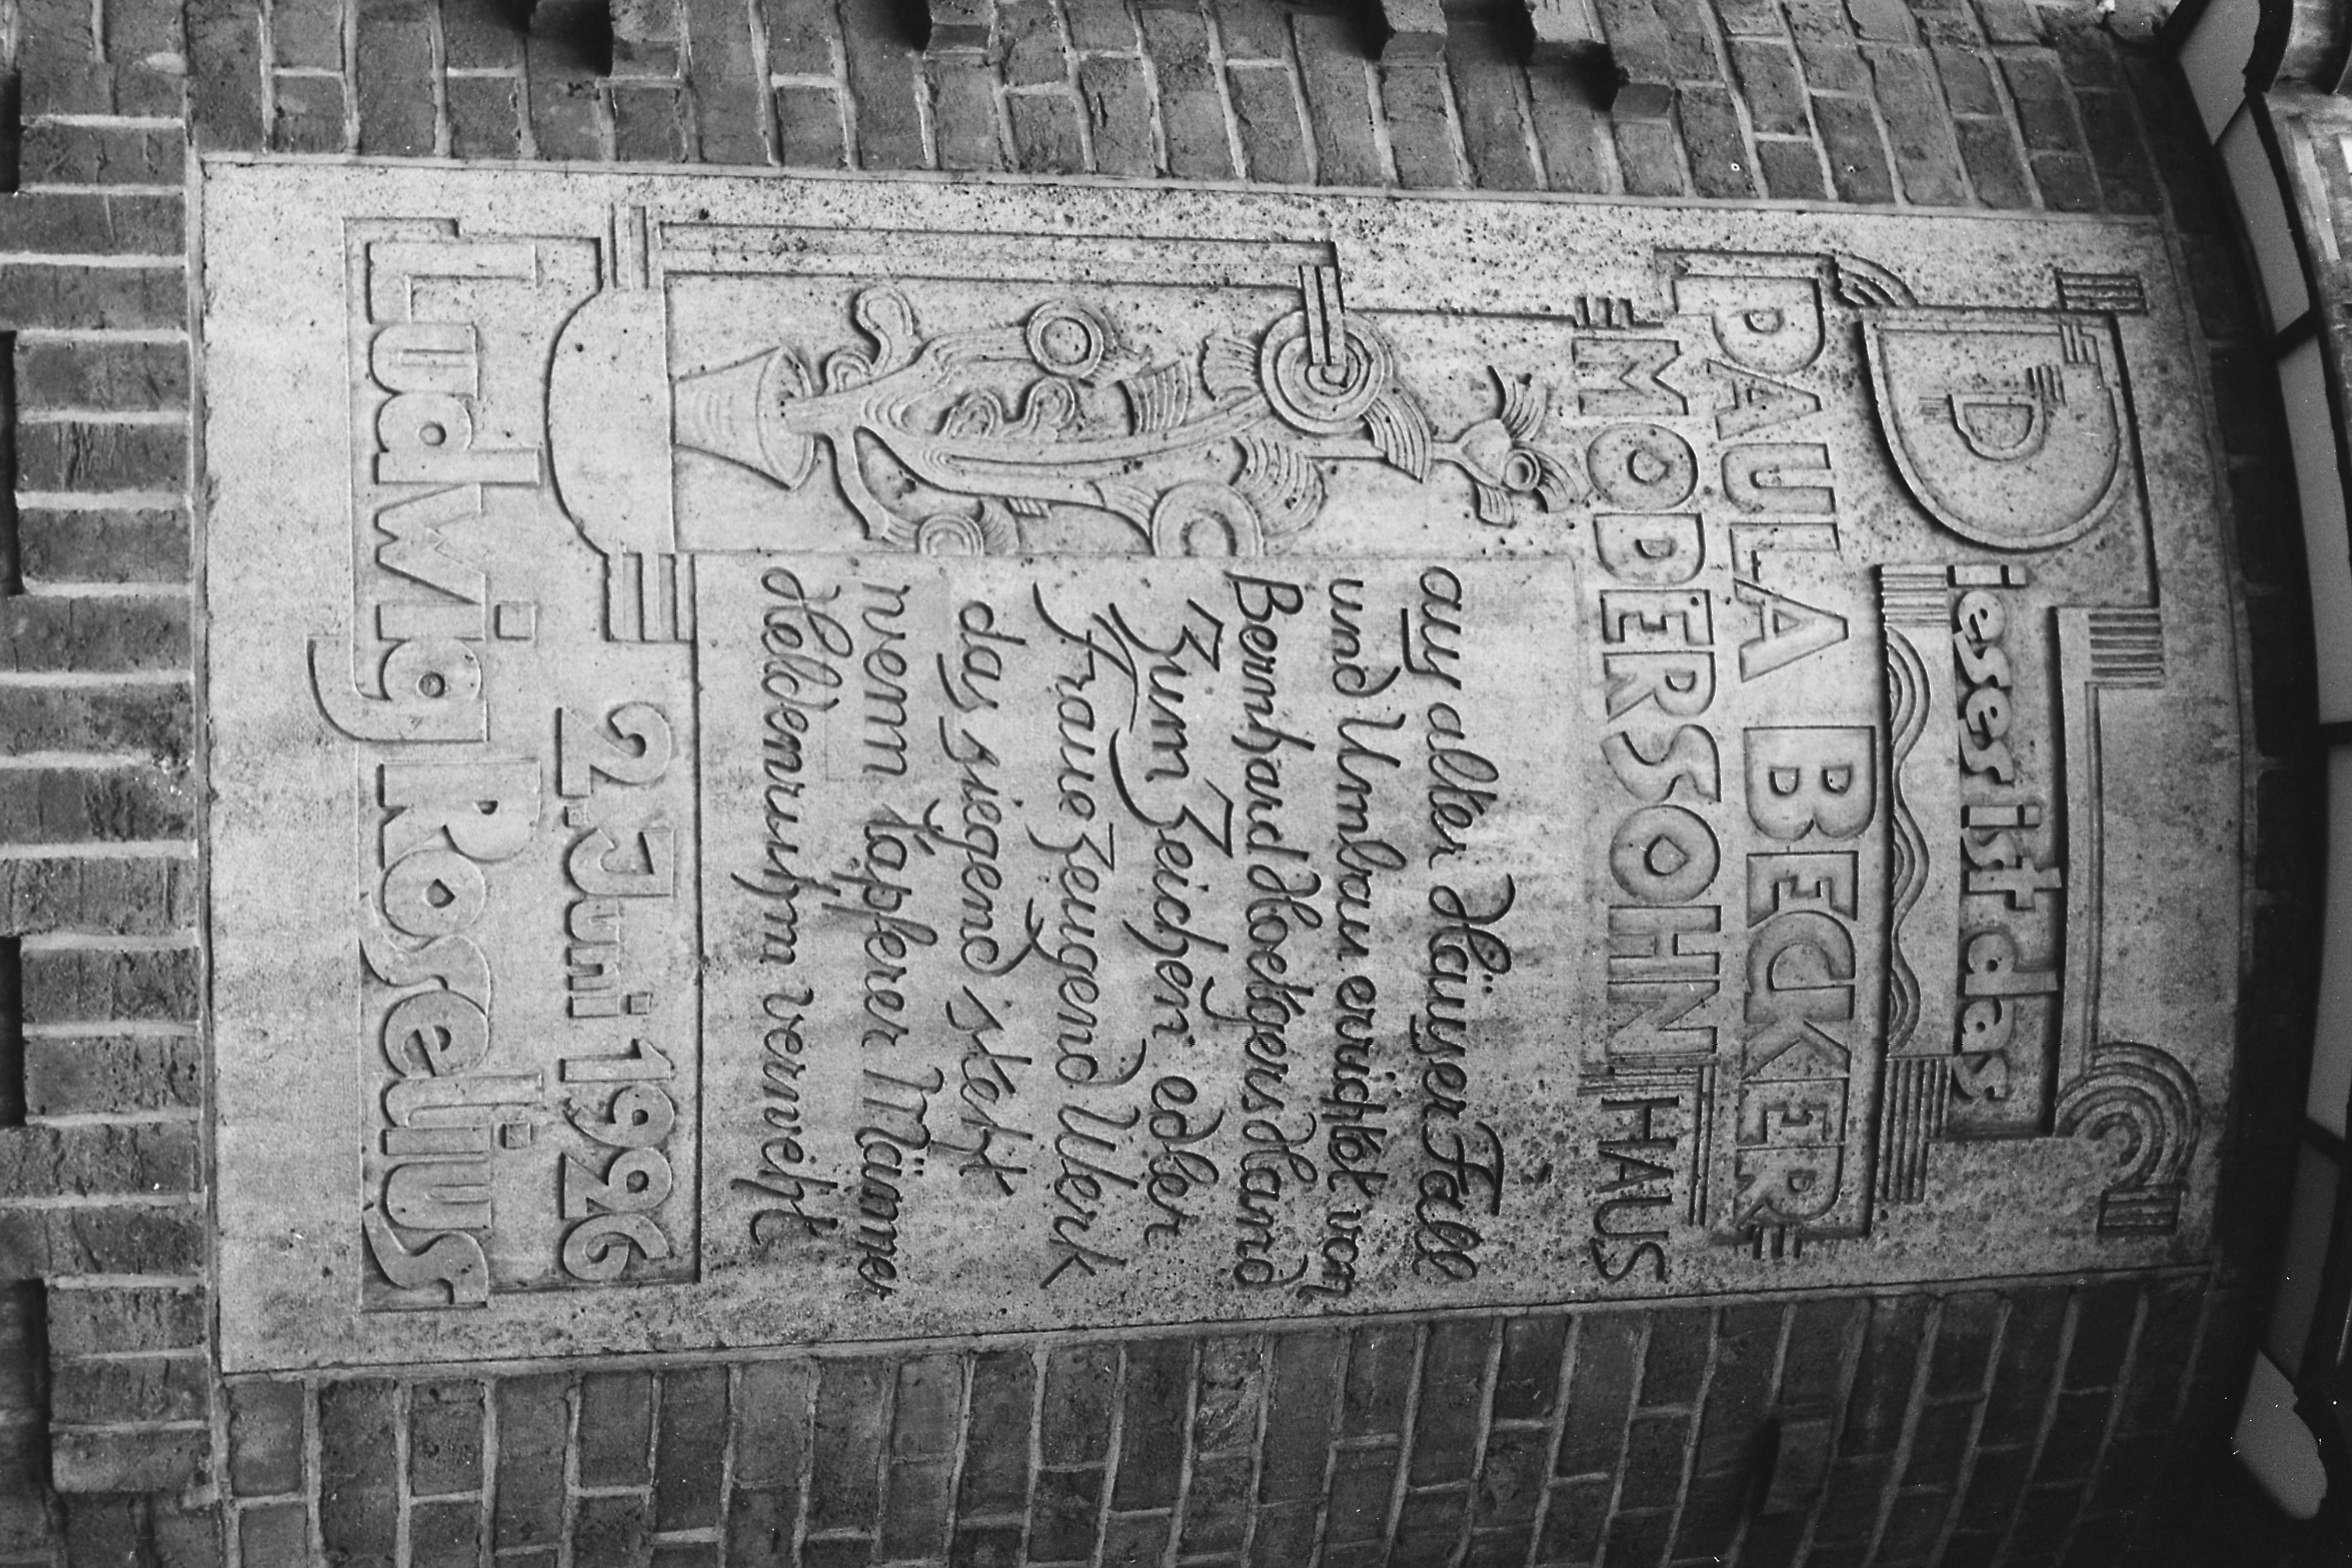 Dieses ist das
PAULA BECKER
MODERSOHN HAUS
aus alter Häuser Fall
und Umbau errichtet von
Bernhard Hoetgers Hand
Zum Zeichen edler
Fraue zeugend Werk
das siegend steht
wenn tapferer Männer
Heldenruhm verweht
2. Juni 1926
Ludwig Roselius